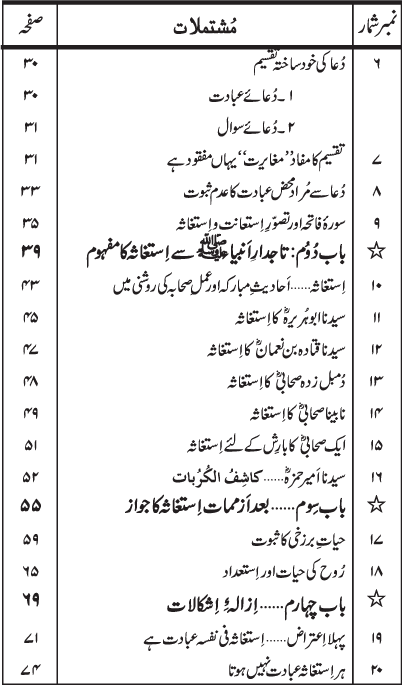 نمبر شمار مُشتملات صفحہ
۶ دُعا کی خود ساختہ تقسیم ۳۰
۱۔ دُعائے عبادت ۳۰
۲۔ دُعائے سوال ۳۱
۷ تقسیم کا مفاد ’’مغایرت‘‘ یہاں مفقود ہے ۳۱
۸ دُعا سے مُراد محض عبادت کا عدم ثبوت ۳۳
۹ سورۂ فاتحہ اور تصوّرِ اِستعانت و اِستغاثہ ۳۵
☆ باب دُوُم: تاجدارِ اَنبیا ﷺ سے اِستغاثہ کا مفہوم ۳۹
۱۰ اِستغاثہ...... اَحادیثِ مبارکہ اور عملِ صحابہ کی روشنی میں ۴۳
۱۱ سیدنا ابو ہریرہؓ کا اِستغاثہ ۴۵
۱۲ سیدنا قتادہ بن نعمانؓ کا اِستغاثہ ۴۷
۱۳ دُمبل زدہ صحابیؓ کا اِستغاثہ ۴۸
۱۴ نابینا صحابیؓ کا اِستغاثہ ۴۹
۱۵ ایک صحابیؓ کا بارِش کے لئے اِستغاثہ ۵۱
۱۶ سیدنا اَمیر حمزہؓ...... کاشِفُ الکُرُبات ۵۲
☆ باب سِوم...... بعد اَز ممات اِستغاثہ کا جواز ۵۵
۱۷ حیاتِ برزخی کا ثبوت ۵۹
۱۸ رُوح کی حیات اور اِستعداد ۶۵
☆ باب چہارم...... اِزالۂ اِشکالات ۶۹
۱۹ پہلا اِعتراض...... اِستغاثہ فی نفسہ عبادت ہے ۷۱
۲۰ ہر اِستغاثہ عبادت نہیں ہوتا ۷۴